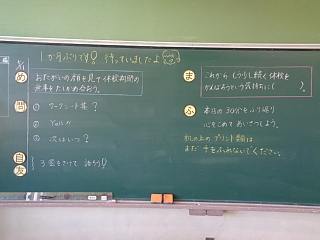 1か月ぶりです! 待っていましたよ
5/1
め
おたがいの顔を見て休校期間の
無事をたしかめ合おう。
問
① ワークシート等?
② Yallか
③ 次はいつ?
自
友
3密をさけて 語ろう!
ま
これから もう少し続く休校を
がんばろうという気持ちに( )。
ふ
本日の30分をふり返り
心をこめて あいさつしよう。
机の上のプリント類は
まだ 手をふれないでください。